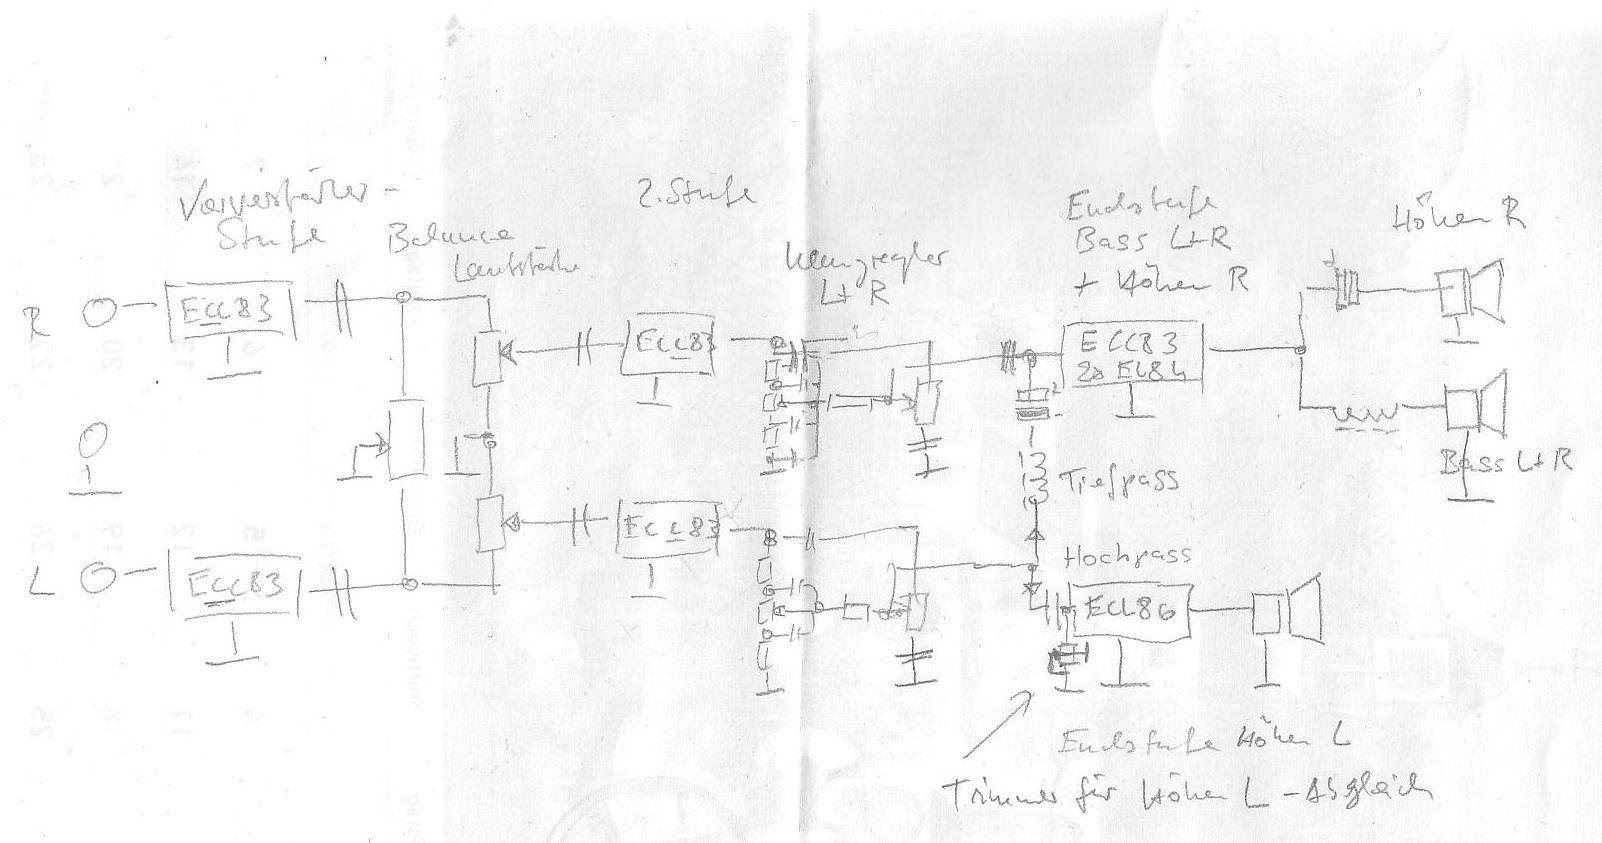 Vorverstärker-
Stufe
Balance
Lautstärke
2. Stufe
Klangregler
L+R
Endstufe
Bass L+R
+ Höhen R
Höhen R
R
ECC83
ECC83
ECC83
2x EL84
Bass L+R
Tiefpass
L
ECC83
ECC83
Hochpass
ECL86
Endstufe Höhen L
Trimmer für Höhen L-Abgleich